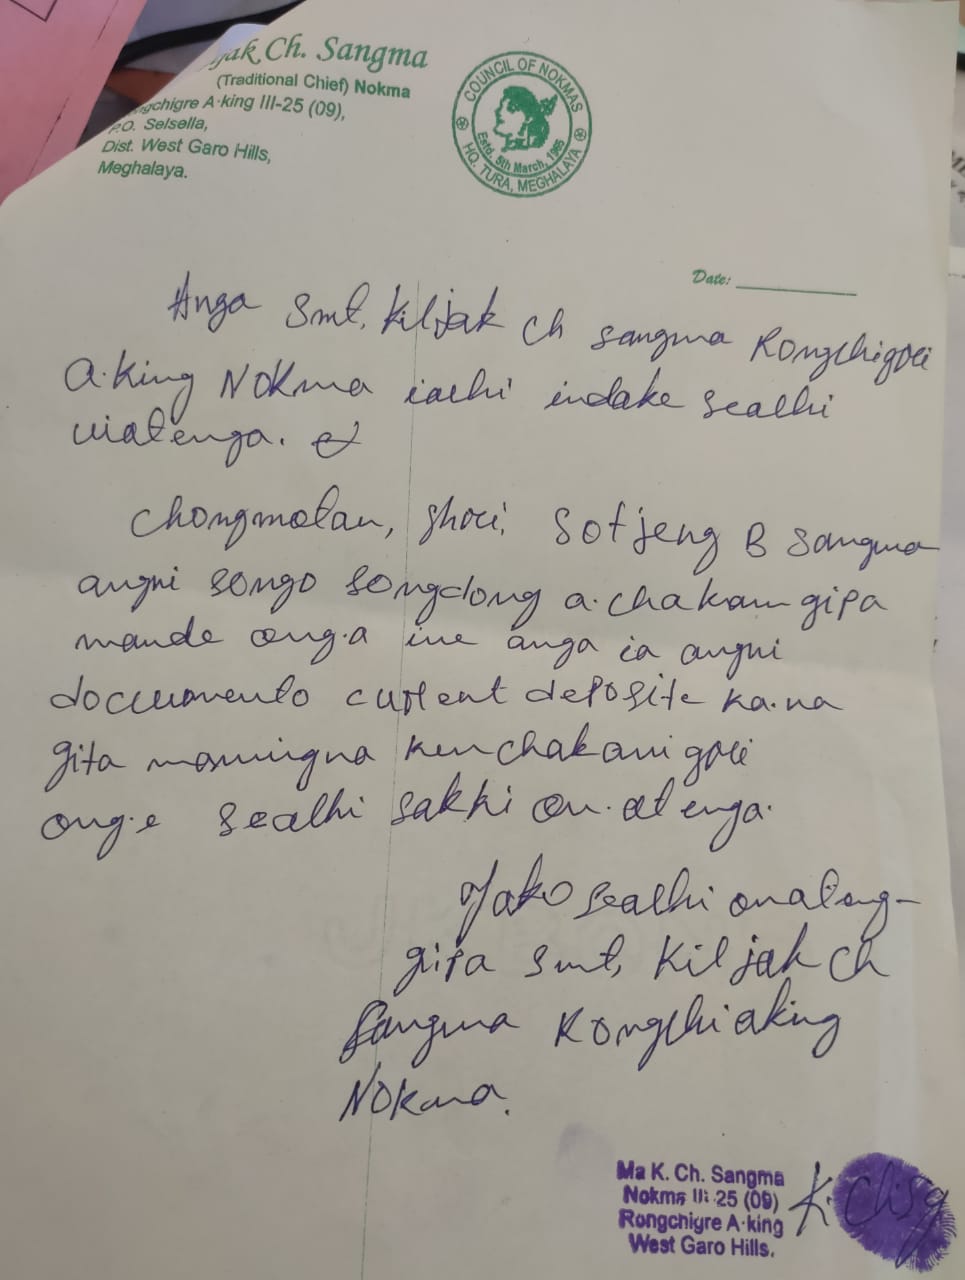 jak Ch. Sangma
(Traditional Chief) Nokma
ngchigre A·king III-25 (09),
P.O. Selsella,
Dist. West Garo Hills,
Meghalaya.
COUNCIL OF NOKMAS
Estd. 5th March, 1965
HQ. TURA, MEGHALAYA
Date:
Anga Smt. Kiljak Ch Sangma Rongchigre
A.king Nokma iachi indake seachi
uiatenga.
Chongmotan, Shri. Sotjeng B Sangma
angni songo songdong a.chakam gipa
mande ong.a ine anga ia angni
documento current deposite ka.na
gita namingna kenchakani gri
ong.e seachi sakki on.atenga.
Iako seachi onateng-
gipa Smt, Kiljak Ch
Sangma Rongchi aking
Nokma.
Ma K. Ch. Sangma
Nokma III-25 (09)
Rongchigre A·king
West Garo Hills.
K. Ch Sg